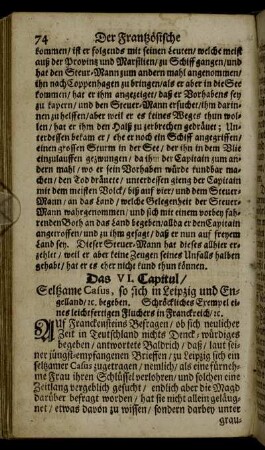 74 Der Frantzösische
kommen / ist er folgends mit seinen Leuten / welche meist
auß der Provintz und Marsilien / zu Schiff gangen / und
hat den Steur-Mann zum andern mahl angenommen /
ihn nach Coppenhagen zu bringen / als er aber in die See
kommen / hat er ihm angezeiget / daß er Vorhabens sey
zu kapern / und den Steuer-Mann ersuchet / ihm darin-
nen zu helffen / aber weil er es keines Weges thun wol-
len / hat er ihm den Halß zu zerbrechen gedräuet ; Un-
terdessen bekam er / ehe er noch ein Schiff angegriffen /
einen grossen Sturm in der See / der ihn in dem Vlie
einzulauffen gezwungen / da ihm der Capitain zum an-
dern mahl / wo er sein Vorhaben würde rundbar ma-
chen / den Tod dräuete / unterdessen gieng der Capitain
mit dem meisten Volck / biß auf vier / und dem Steuer-
Mann / an das Land / welche Gelegenheit der Steuer-
Mann wahrgenommen / und sich mit einem vorbey fah-
renden Both an das Land begeben / allda er den Capitain
angetroffen / und zu ihm gesagt / daß er nun auf freyem
Land sey. Dieser Steuer-Mann hat dieses allhier er-
zehlet / weil er aber keine Zeugen seines Unfalls halben
gehabt / hat er es eher nicht kund thun können.
Das VI. Capitul /
Seltzame Casus, so sich in Leipzig und En-
gelland / ꝛc. begeben. Schröckliches Exempel ei-
nes leichtfertigen Fluchers in Franckreich / ꝛc.
AUf Franckensteins Befragen / ob sich neulicher
Zeit in Teutschland nichts Denck-würdiges
begeben / antwortete Baldrich / daß / laut sei-
ner jüngst-empfangenen Brieffen / zu Leipzig sich ein
seltzamer Casus zugetragen / nemlich / als eine fürneh-
me Frau ihren Schlüssel verlohren / und solchen eine
Zeitlang vergeblich gesucht / endlich aber die Magd
darüber befragt worden / hat sie nicht allein geläug-
net / etwas davon zu wissen / sondern darbey unter
grau-